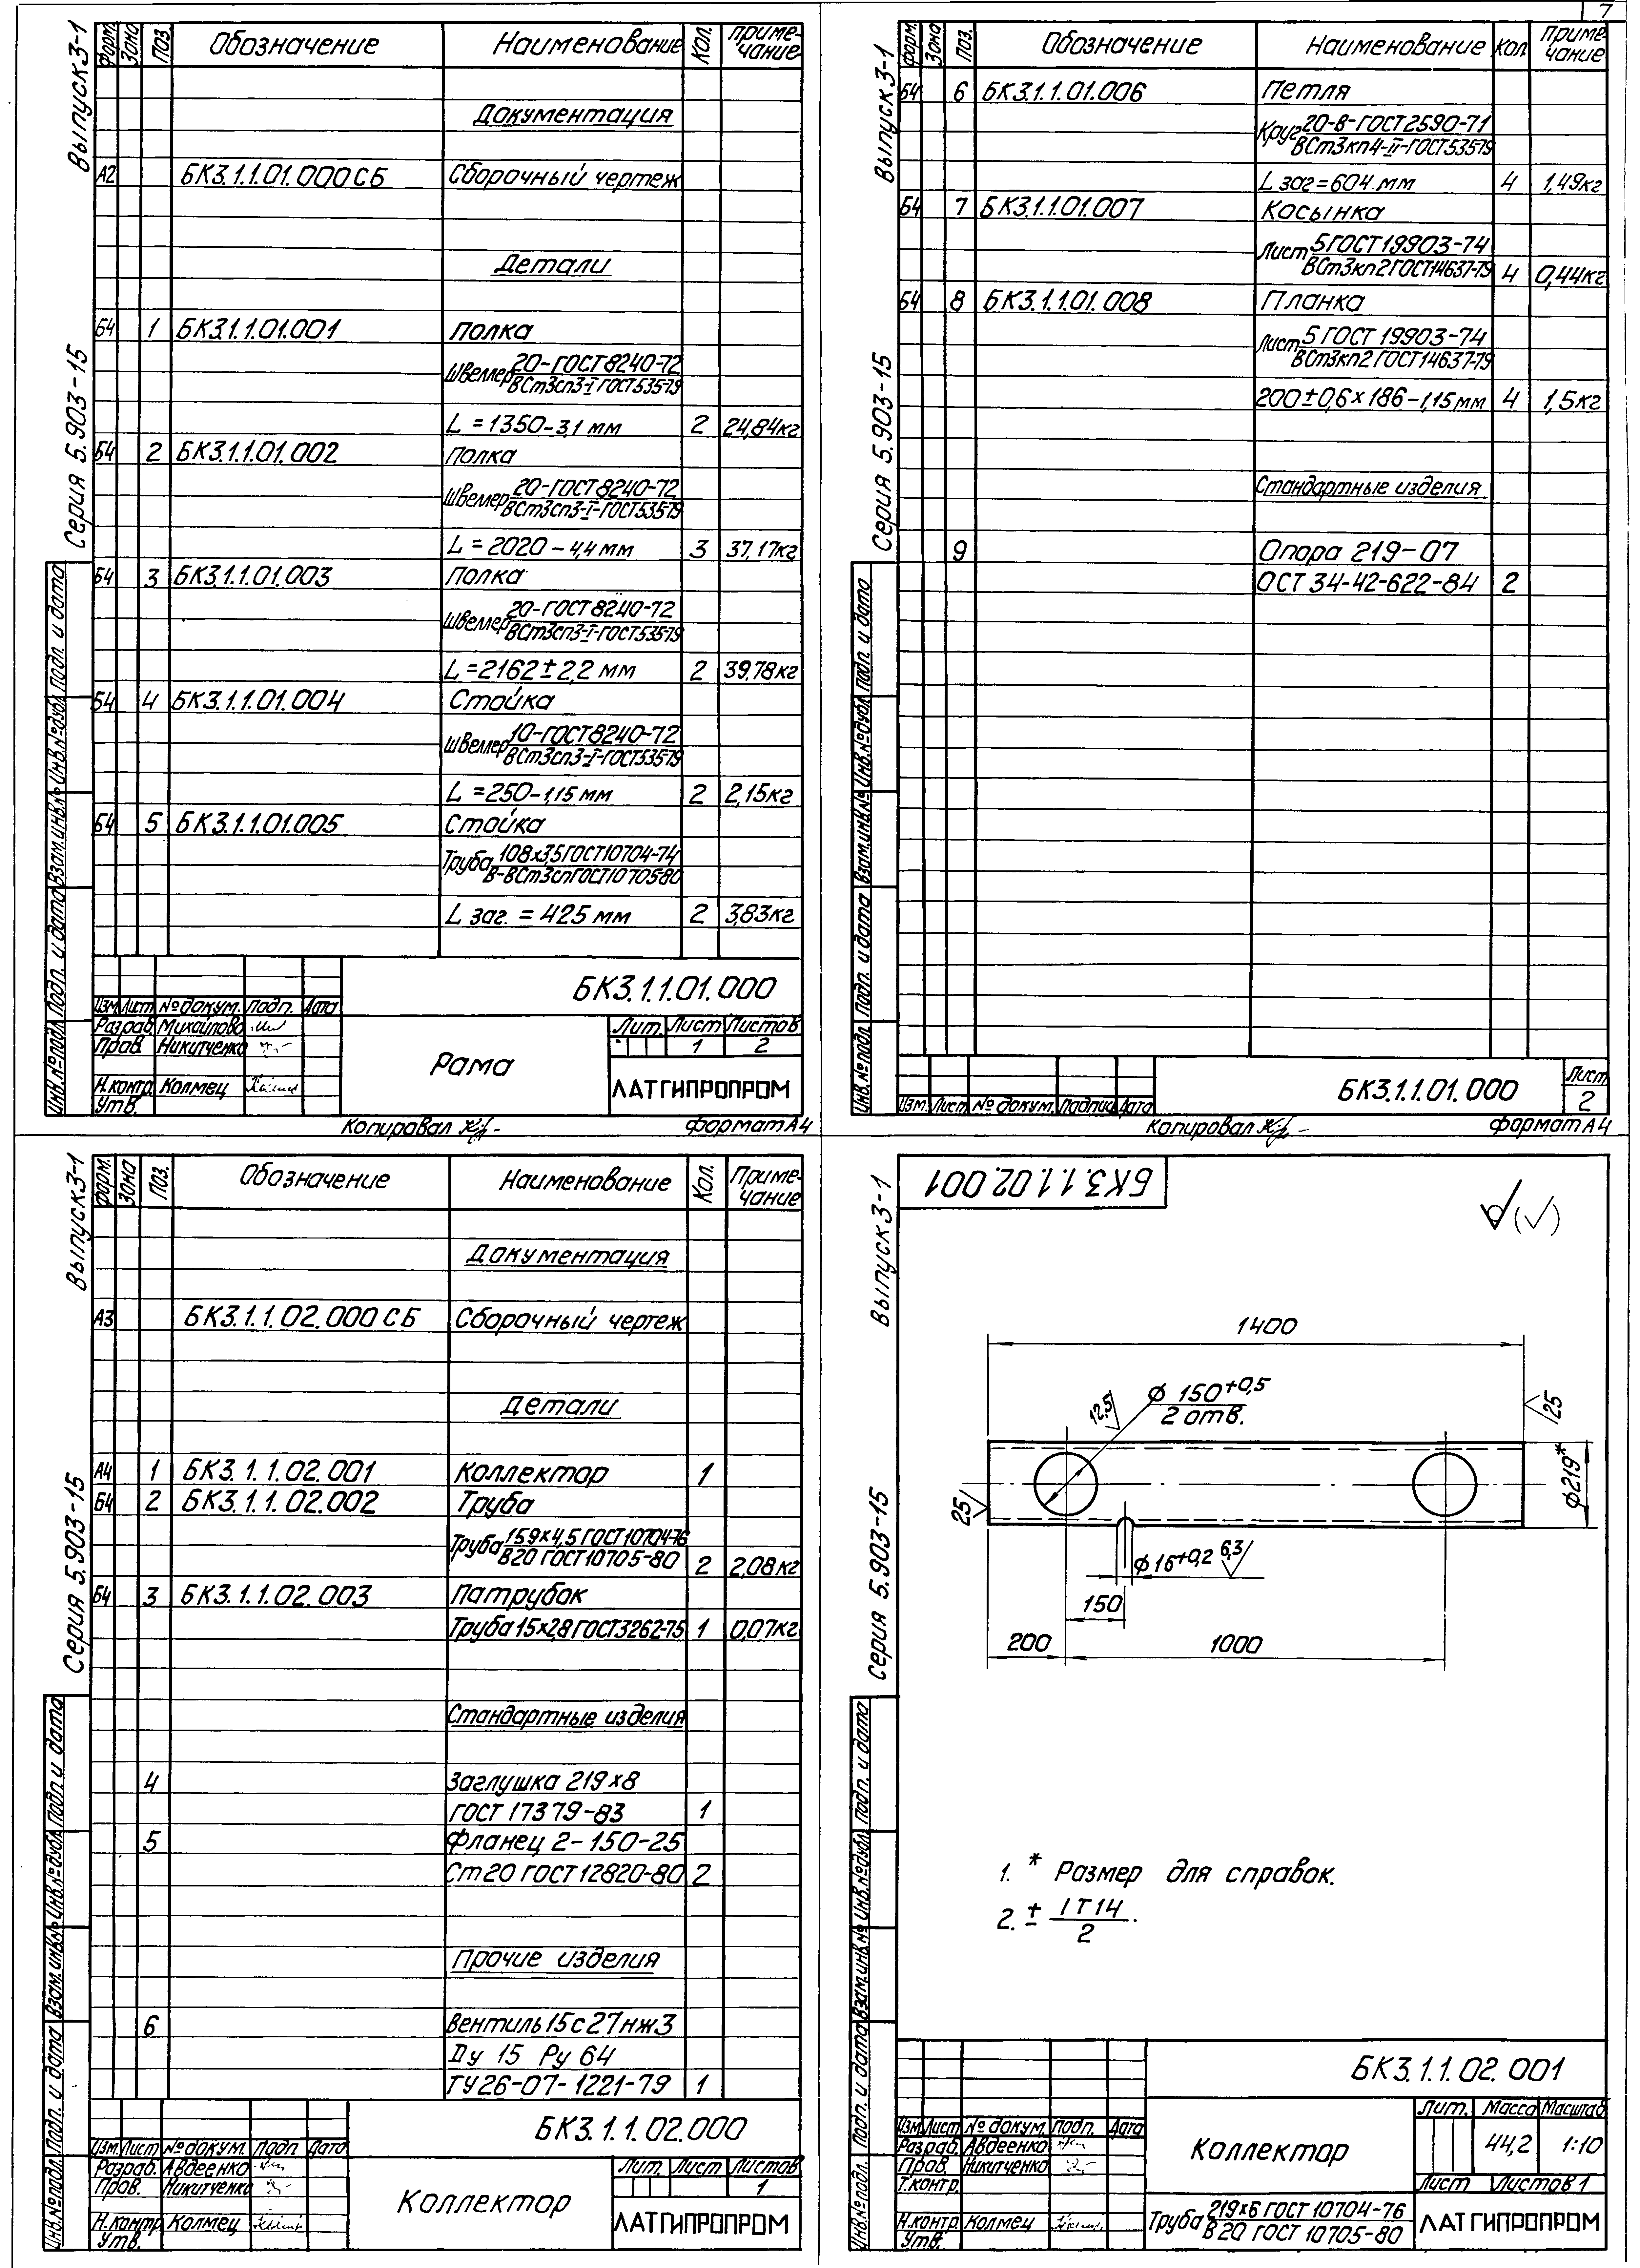 7
Выпуск 3-1
Серия 5.903-15
Форм. Зона Поз. Обозначение Наименование Кол. Приме-
чание
Документация
А2 БК3.1.1.01.000СБ Сборочный чертеж
Детали
Б4 1 БК3.1.1.01.001 Полка
Швеллер 20-ГОСТ8240-72
ВСт3сп3-I-ГОСТ535-79
L = 1350-3,1 мм 2 24,84кг
Б4 2 БК3.1.1.01.002 Полка
Швеллер 20-ГОСТ8240-72
ВСт3сп3-I-ГОСТ535-79
L = 2020-4,4 мм 3 37,17кг
Б4 3 БК3.1.1.01.003 Полка
Швеллер 20-ГОСТ8240-72
ВСт3сп3-I-ГОСТ535-79
L = 2162±2,2 мм 2 39,78кг
Б4 4 БК3.1.1.01.004 Стойка
Швеллер 10-ГОСТ8240-72
ВСт3сп3-I-ГОСТ535-79
L = 250-1,15 мм 2 2,15кг
Б4 5 БК3.1.1.01.005 Стойка
Труба 108х3,5ГОСТ10704-74
В-ВСт3спГОСТ10705-80
L заг. = 425 мм 2 3,83кг
Инв.№подл. Подп. и дата Взам.инв.№ Инв.№дубл. Подп. и дата
БК3.1.1.01.000
Изм. Лист № докум. Подп. Дата
Разраб. Михайлова
Пров. Никитченко
Н.контр. Колмец
Утв.
Рама
Лит. Лист Листов
1 2
ЛАТГИПРОПРОМ
Копировал
формат А4
Выпуск 3-1
Серия 5.903-15
Форм. Зона Поз. Обозначение Наименование Кол. Приме-
чание
Б4 6 БК3.1.1.01.006 Петля
Круг 20-В-ГОСТ2590-71
ВСт3кп4-II-ГОСТ535-79
L заг = 604 мм 4 1,49кг
Б4 7 БК3.1.1.01.007 Косынка
Лист 5ГОСТ19903-74
ВСт3кп2ГОСТ14637-79 4 0,44кг
Б4 8 БК3.1.1.01.008 Планка
Лист 5 ГОСТ 19903-74
ВСт3кп2 ГОСТ14637-79
200±0,6х186-1,15мм 4 1,5кг
Стандартные изделия
9 Опора 219-07
ОСТ 34-42-622-84 2
Инв.№подл. Подп. и дата Взам.инв.№ Инв.№дубл. Подп. и дата
Изм. Лист № докум. Подпись Дата
БК3.1.1.01.000
Лист
2
Копировал
формат А4
Выпуск 3-1
Серия 5.903-15
Форм. Зона Поз. Обозначение Наименование Кол. Приме-
чание
Документация
А3 БК3.1.1.02.000СБ Сборочный чертеж
Детали
А4 1 БК3.1.1.02.001 Коллектор 1
Б4 2 БК3.1.1.02.002 Труба
Труба 159х4,5 ГОСТ10704-76
В20 ГОСТ10705-80 2 2,08кг
Б4 3 БК3.1.1.02.003 Патрубок
Труба 15х2,8ГОСТ3262-75 1 0,07кг
Стандартные изделия
4 Заглушка 219х8
ГОСТ 17379-83 1
5 Фланец 2-150-25
Ст20 ГОСТ12820-80 2
Прочие изделия
6 Вентиль 15с27нж3
Ду 15 Ру 64
ТУ26-07-1221-79 1
Инв.№подл. Подп. и дата Взам.инв.№ Инв.№дубл. Подп. и дата
БК3.1.1.02.000
Изм. Лист № докум. Подп. Дата
Разраб. Авдеенко
Пров. Никитченко
Н.контр. Колмец
Утв.
Коллектор
Лит. Лист Листов
1
ЛАТГИПРОПРОМ
Выпуск 3-1
Серия 5.903-15
БК3.1.1.02.001
1400
ф 150+0,5
2 отв.
12,5
25
ф219*
25
ф16+0,2 6,3
150
200 1000
1. * Размер для справок.
2. ± IT14
2
Инв.№подл. Подп. и дата Взам.инв.№ Инв.№дубл. Подп. и дата
БК3.1.1.02.001
Изм. Лист № докум. Подп. Дата
Разраб. Авдеенко
Пров. Никитченко
Т.контр.
Н.контр. Колмец
Утв.
Коллектор
Лит. Масса Масштаб
44,2 1:10
Лист Листов 1
Труба 219х6 ГОСТ 10704-76
В20 ГОСТ 10705-80
ЛАТГИПРОПРОМ